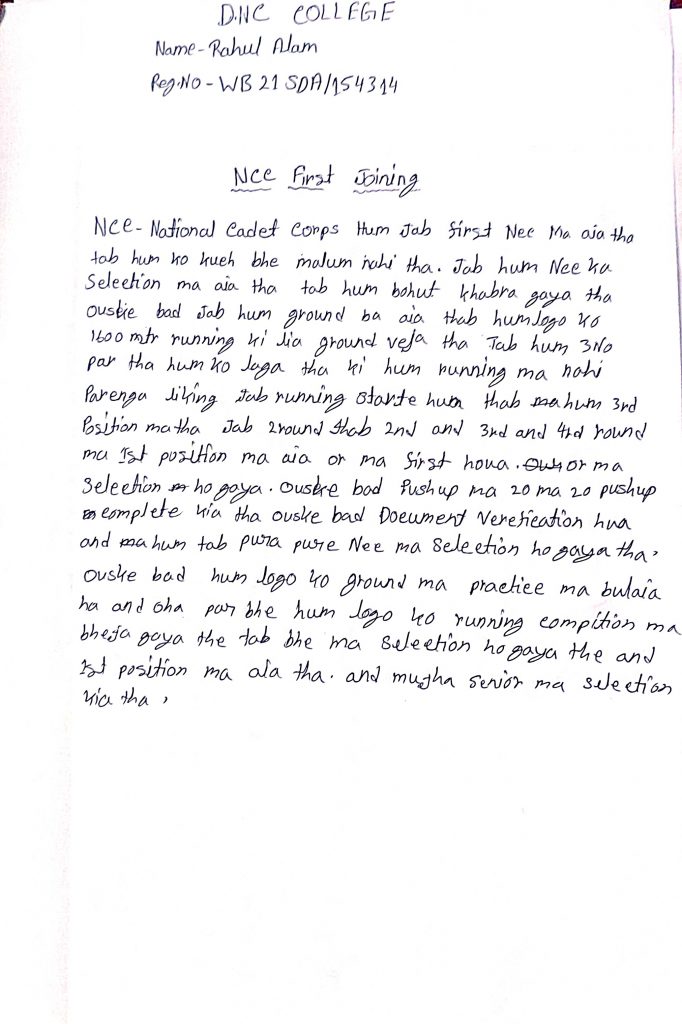 D.NC COLLEGE
Name - Rahul Alam
Reg.No - WB 21 SDA/154314
Ncc First Joining
NCC - National Cadet Corps Hum Jab first Ncc Ma aia tha
tab hum ko kuch bhe malum nahi tha. Jab hum Ncc ka
Selection ma aia tha tab hum bohut khabra gaya tha
Ouske bad Jab hum ground ba aia thab humlogo ko
1600 mtr running ki lia ground veja tha Jab hum 3No
par tha hum ko laga tha ki hum running ma nahi
Parenga liking Jab running starte hua thab hum 3rd
Position ma tha Jab 2round thab 2nd and 3rd and 4rd round
ma Ist position ma aia or ma first houa. or ma
Selection ho gaya. Ouske bad Pushup ma 20 ma 20 pushup
complete kia tha ouske bad Document Verefication hua
and hum tab pura pure Ncc ma Selection ho gaya tha.
Ouske bad hum logo ko ground ma practice ma bulaia
ha and oha par bhe hum logo ko running compition ma
bheja gaya the tab bhe ma selection ho gaya the and
Ist position ma aia tha. and mujha senior ma selection
kia tha.